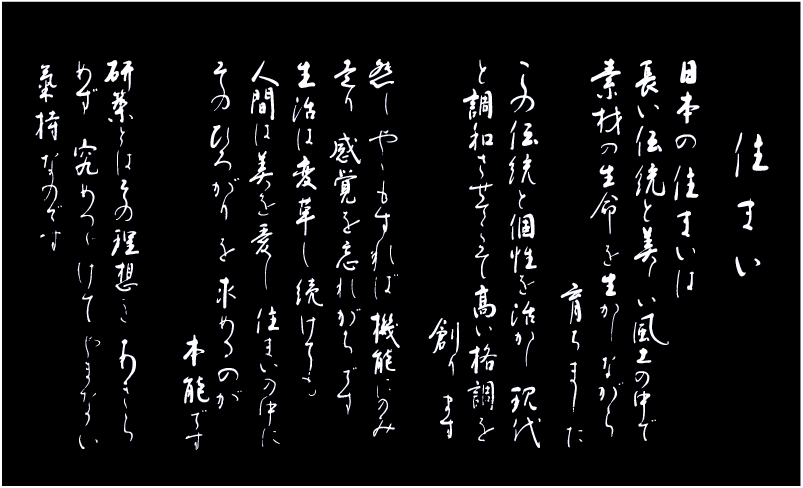 住まい
日本の住まいは
長い伝統と美しい風土の中で
素材の生命を生かしながら
育ちました
この伝統と個性を活かし 現代
と調和させて 高い格調を
創ります
然し やゝもすれば 機能にのみ
走り 感覚を忘れがちです
生活は変革し続けても
人間は美を愛し 住まいの中に
そのひろがりを 求めるのが
本能です
研築とはその理想を あきら
めず 究めつゞけて やまない
氣持なのです